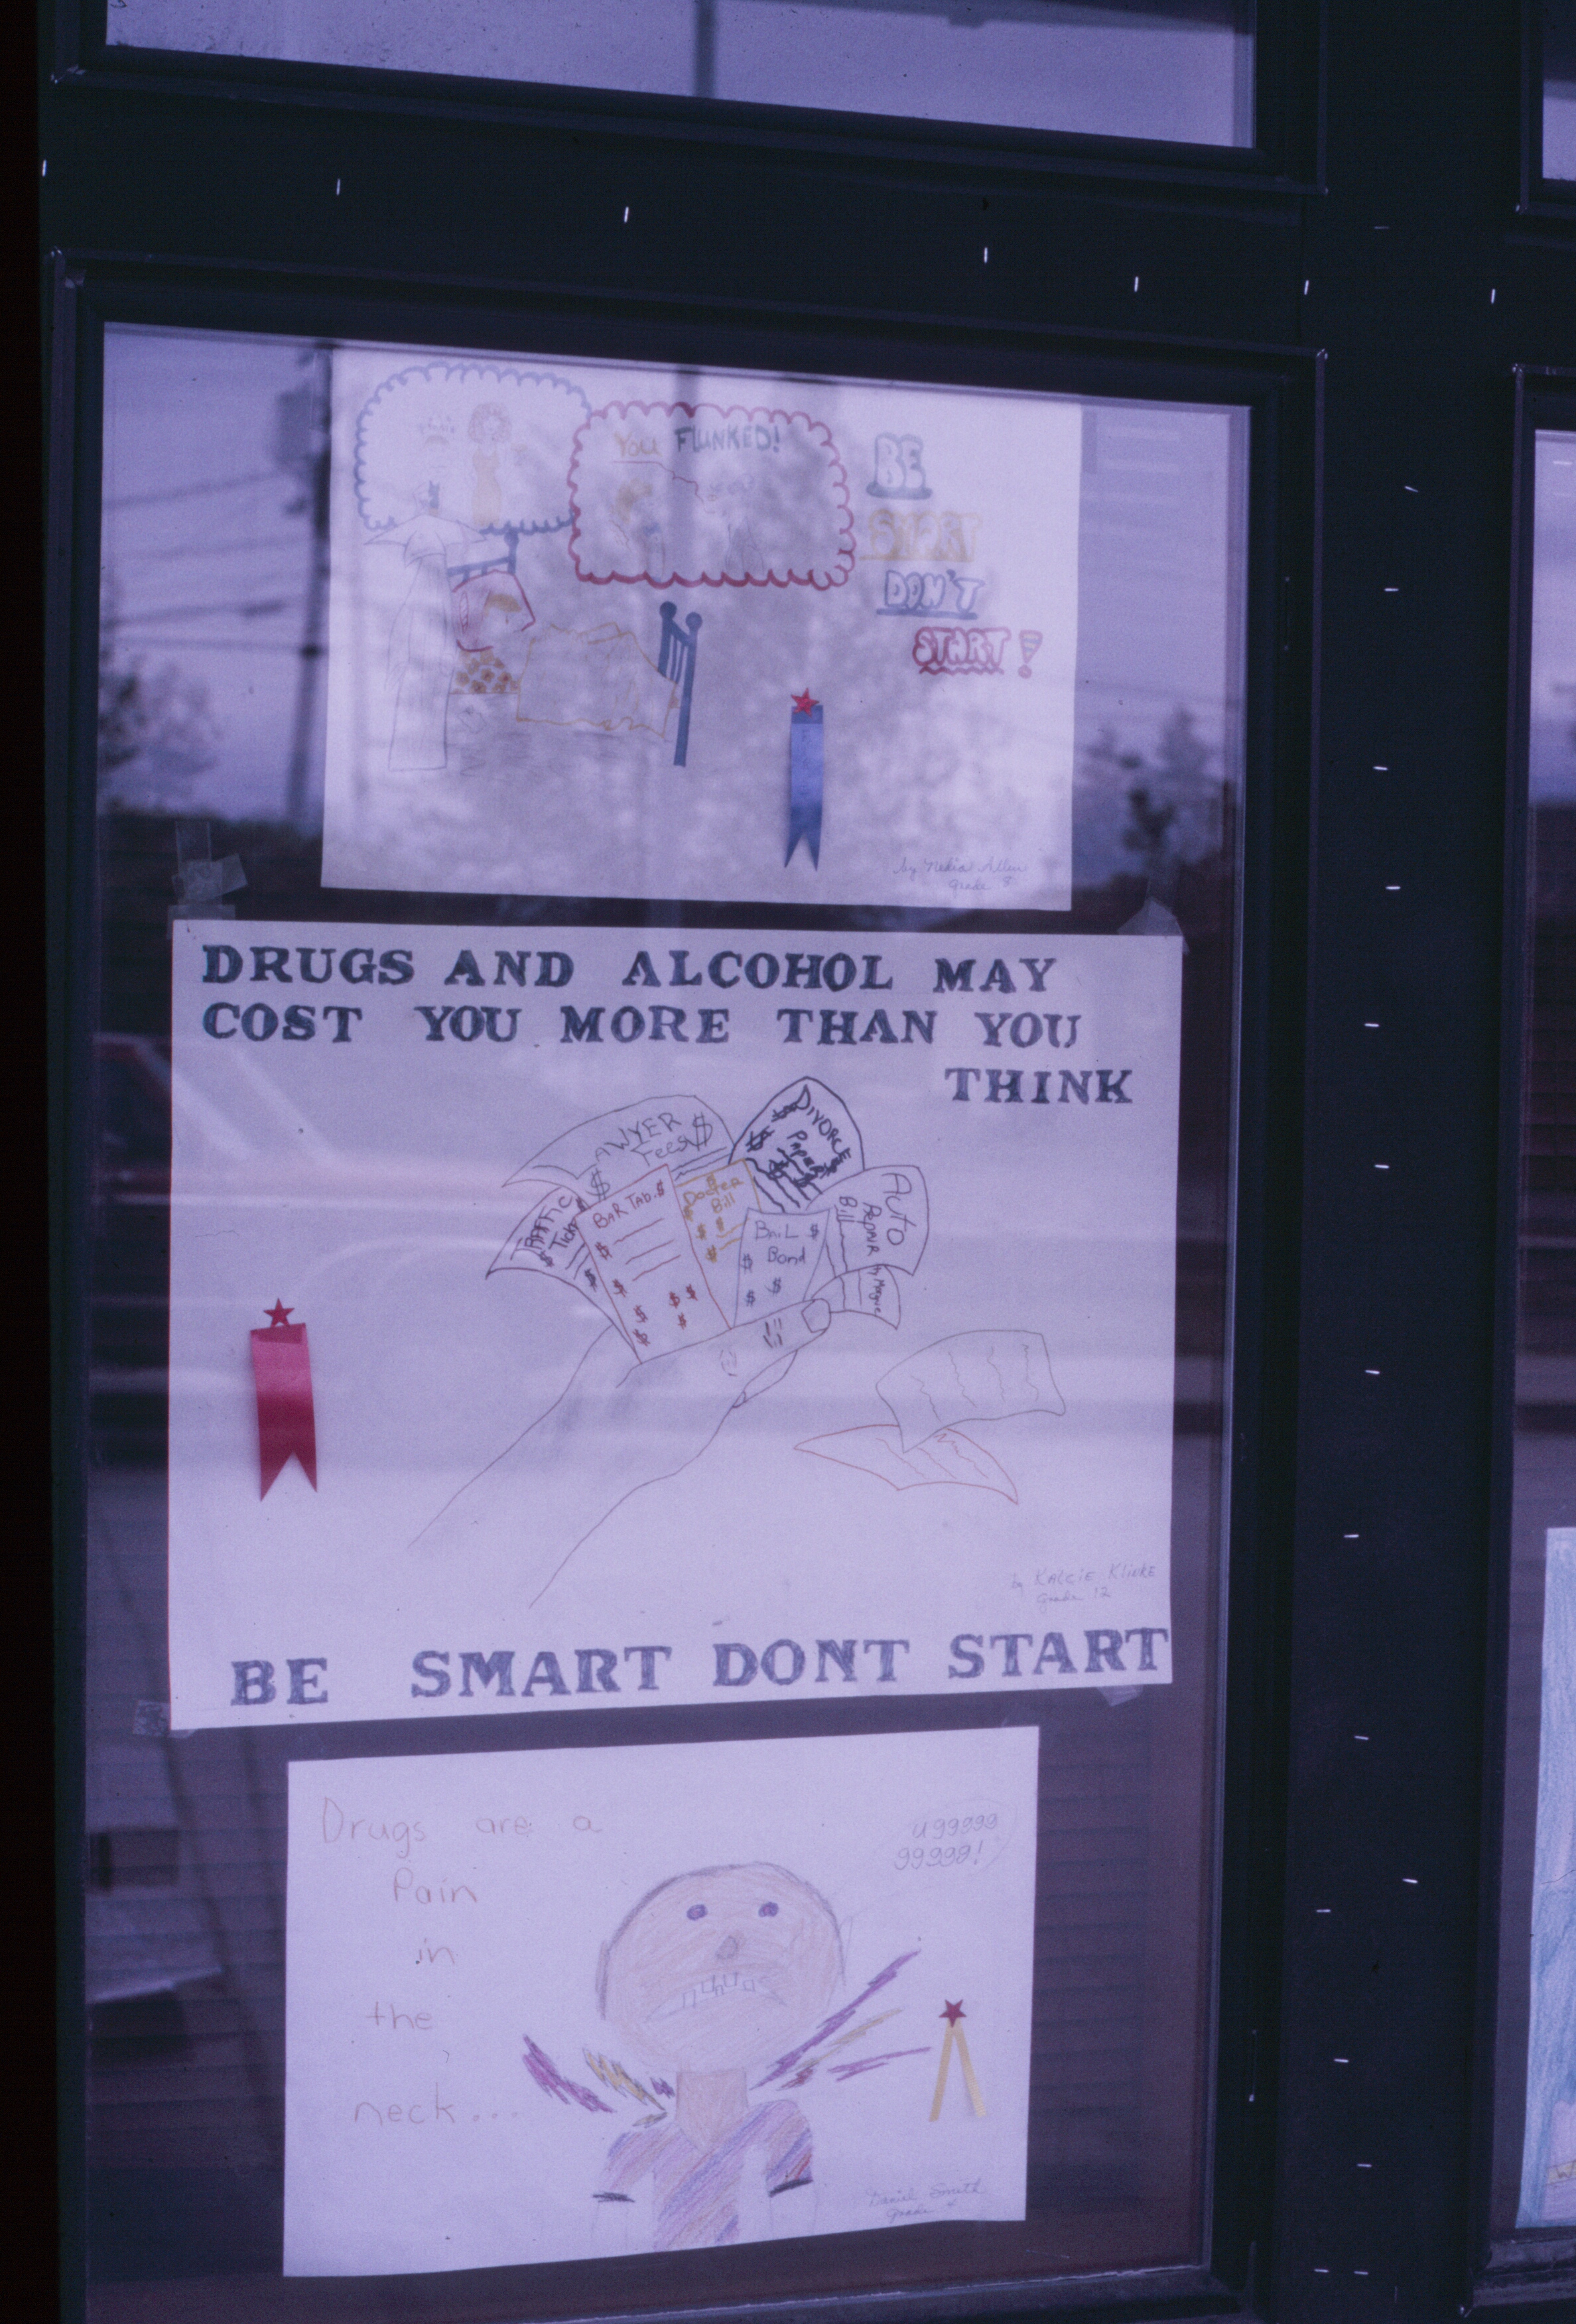 YOU FLUNKED!
BE
SMART
DON'T
START!
Allen
Grade 8
DRUGS AND ALCOHOL MAY
COST YOU MORE THAN YOU
THINK
LAWYER
Fees $
$
DIVORCE
Papers
$ $
TRAFFIC
Ticket
$ $
BAR TAB $
$
$ $ $
$ $
$
Docter
Bill
$ $
$ $
$
BaiL $
$ Bond
$ $
Auto
Repair
Bill
by KALCIE Klinke
Grade 12
BE SMART DONT START
Drugs are a
Pain
in
the
neck...
uggggg
ggggg!
Daniel Smith
Grade